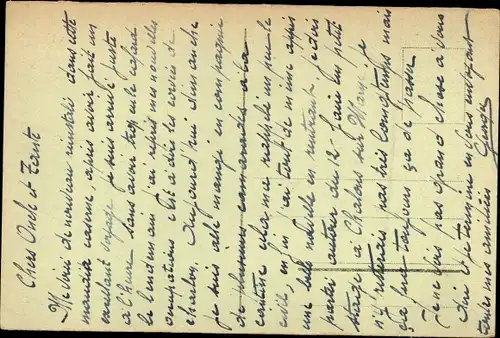 Chers Oncle et Tante
Me voici de nouveau réinstallé dans cette
maudite caserne, après avoir fait un
excellent voyage je suis arrivé juste
à l'heure sans avoir trop eu le cafard
le lendemain j'ai repris mes nouvelles
occupations c'est à dire les corvées de
charbon. Aujourd'hui dimanche
je suis allé mangé en compagnie
de plusieurs camarades à la
cantine cela me rappelle un peu le
civil, enfin j'ai tout de même appris
une belle nouvelle en rentrant je dois
partir autour du 12 faire un petit
stage à Chalons sur Marne je
n'y resterais pas très longtemps mais
ça fera toujours ça de passé
Je ne vois pas grand chose à vous
dire et je termine en vous envoyant
toutes mes amitiées
George